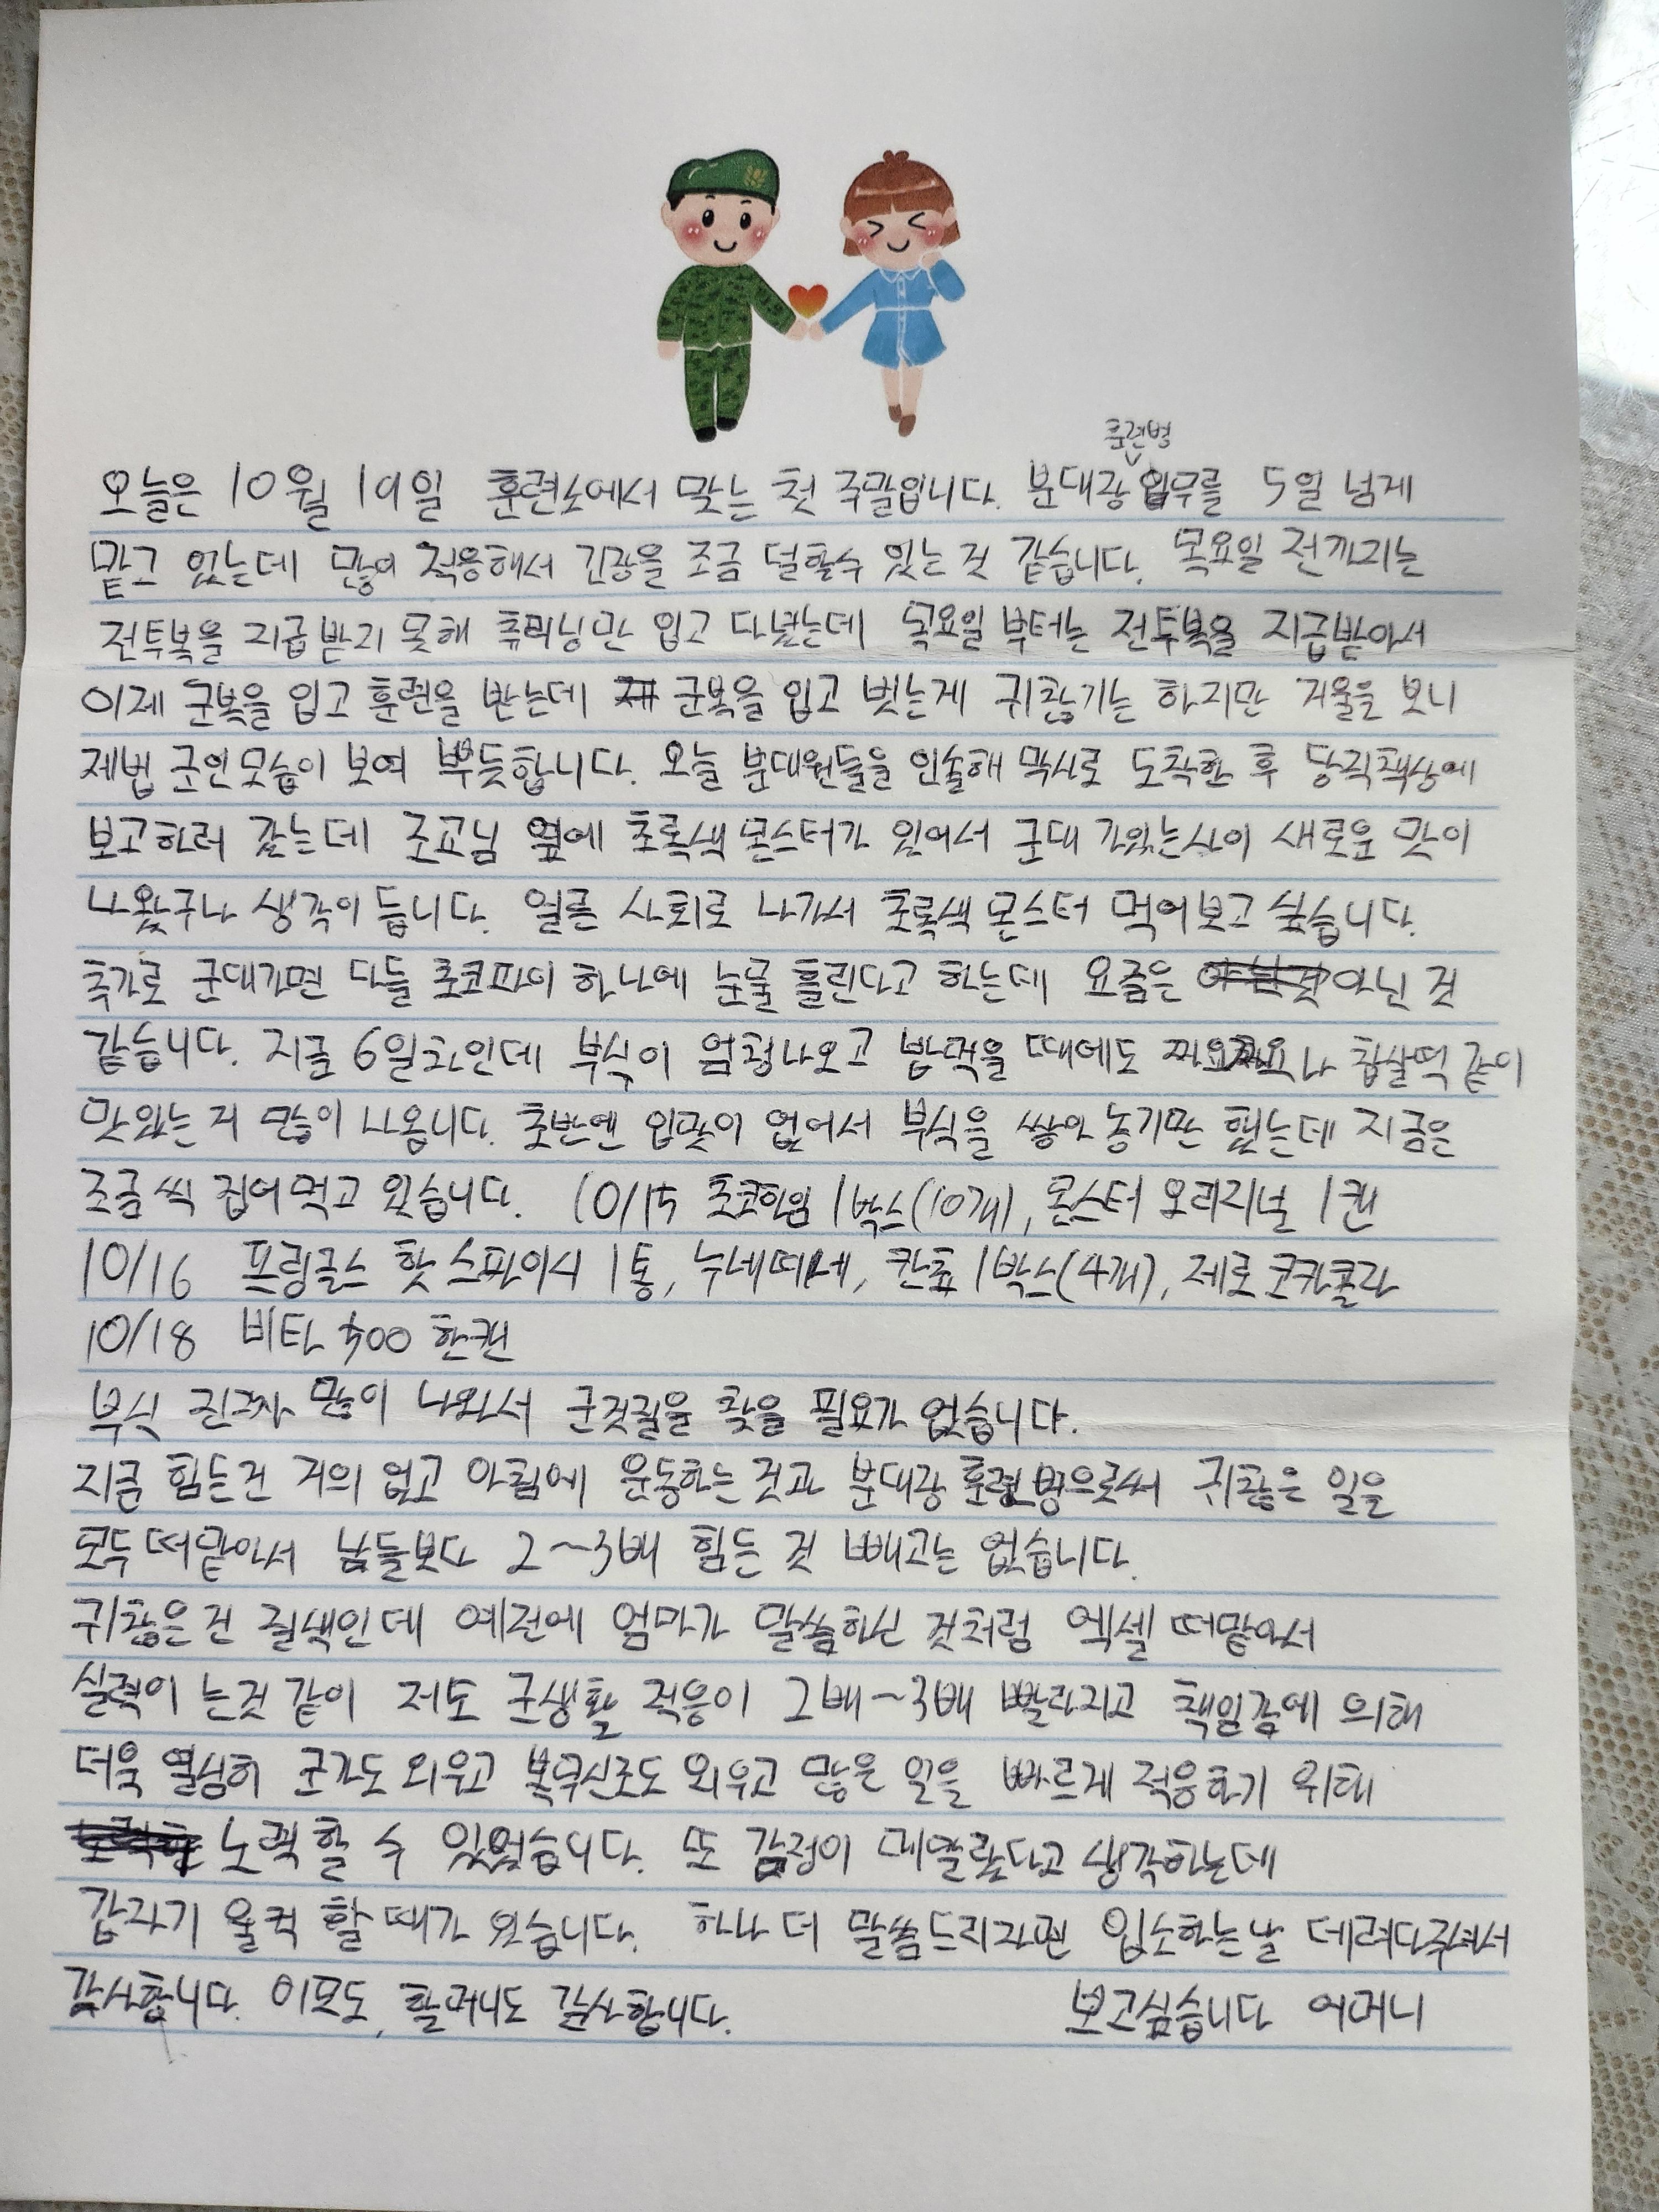 훈련병
오늘은 10월 19일 훈련소에서 맞는 첫 주말입니다. 분대장 임무를 5일 넘게
맡고 있는데 많이 적응해서 긴장을 조금 덜할수 있는 것 같습니다. 목요일 전까지는
전투복을 지급받기 못해 츄리닝만 입고 다녔는데 목요일 부터는 전투복을 지급받아서
이제 군복을 입고 훈련을 받는데 군복을 입고 벗는게 귀찮기는 하지만 거울을 보니
제법 군인모습이 보여 뿌듯합니다. 오늘 분대원들을 인솔해 막사로 도착한 후 당직책상에
보고하러 갔는데 조교님 옆에 초록색 몬스터가 있어서 군대 가있는사이 새로운 맛이
나왔구나 생각이 듭니다. 얼른 사회로 나가서 초록색 몬스터 먹어보고 싶습니다.
추가로 군대가면 다들 초코파이 하나에 눈물 흘린다고 하는데 요즘은 아닌 것
같습니다. 지금 6일차인데 부식이 엄청나오고 밥먹을 때에도 찹쌀떡 같이
맛있는 게 많이 나옵니다. 초반엔 입맛이 없어서 부식을 쌓아 놓기만 했는데 지금은
조금씩 집어먹고 있습니다. 10/15 초코하임 1박스(10개), 몬스터 오리지널 1캔
10/16 프링글스 핫 스파이시 1통, 누네띠네, 칸쵸 1박스(4개), 제로 코카콜라
10/18 비타 500 한캔
부식 진짜 많이 나와서 군것질을 찾을 필요가 없습니다.
지금 힘든건 거의 없고 아침에 운동하는 것과 분대장 훈련병으로써 귀찮은 일을
모두 떠맡아서 남들보다 2~3배 힘든 것 빼고는 없습니다.
귀찮은건 질색인데 예전에 엄마가 말씀하신 것처럼 엑셀 떠맡아서
실력이 는것 같이 저도 군생활 적응이 2배~3배 빨라지고 책임감에 의해
더욱 열심히 군가도 외우고 복무신조도 외우고 많은 일을 빠르게 적응하기 위해
노력할 수 있었습니다. 또 감정이 메말랐다고 생각하는데
갑자기 울컥 할때가 있습니다. 하나 더 말씀드리자면 입소하는날 데려다주셔서
감사합니다. 이모도, 할머니도 감사합니다. 보고싶습니다 어머니